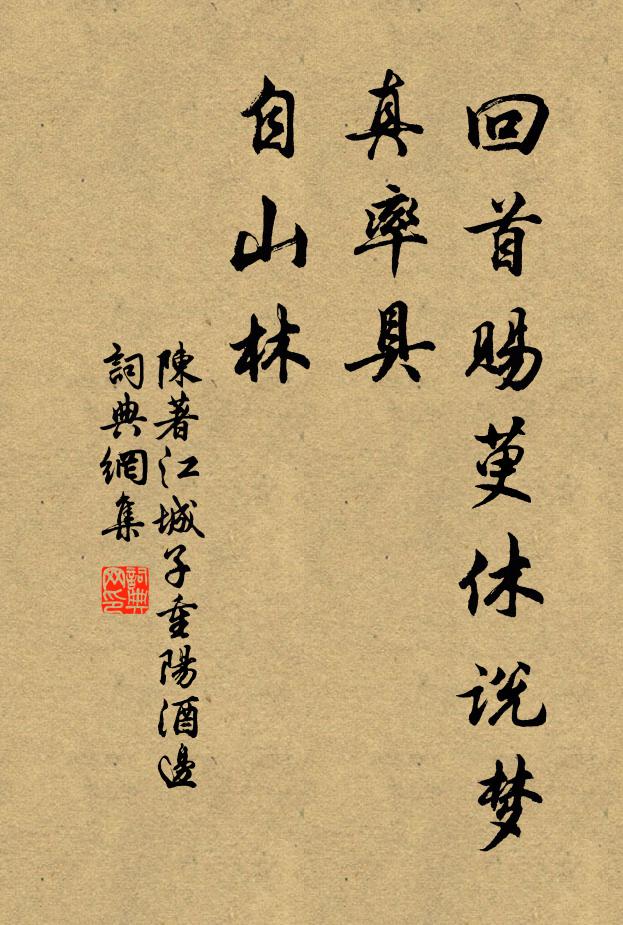 回首賜萸休说梦
真率具
自山林
陳著江城子重陽酒邊
詞典網集
詞典网印